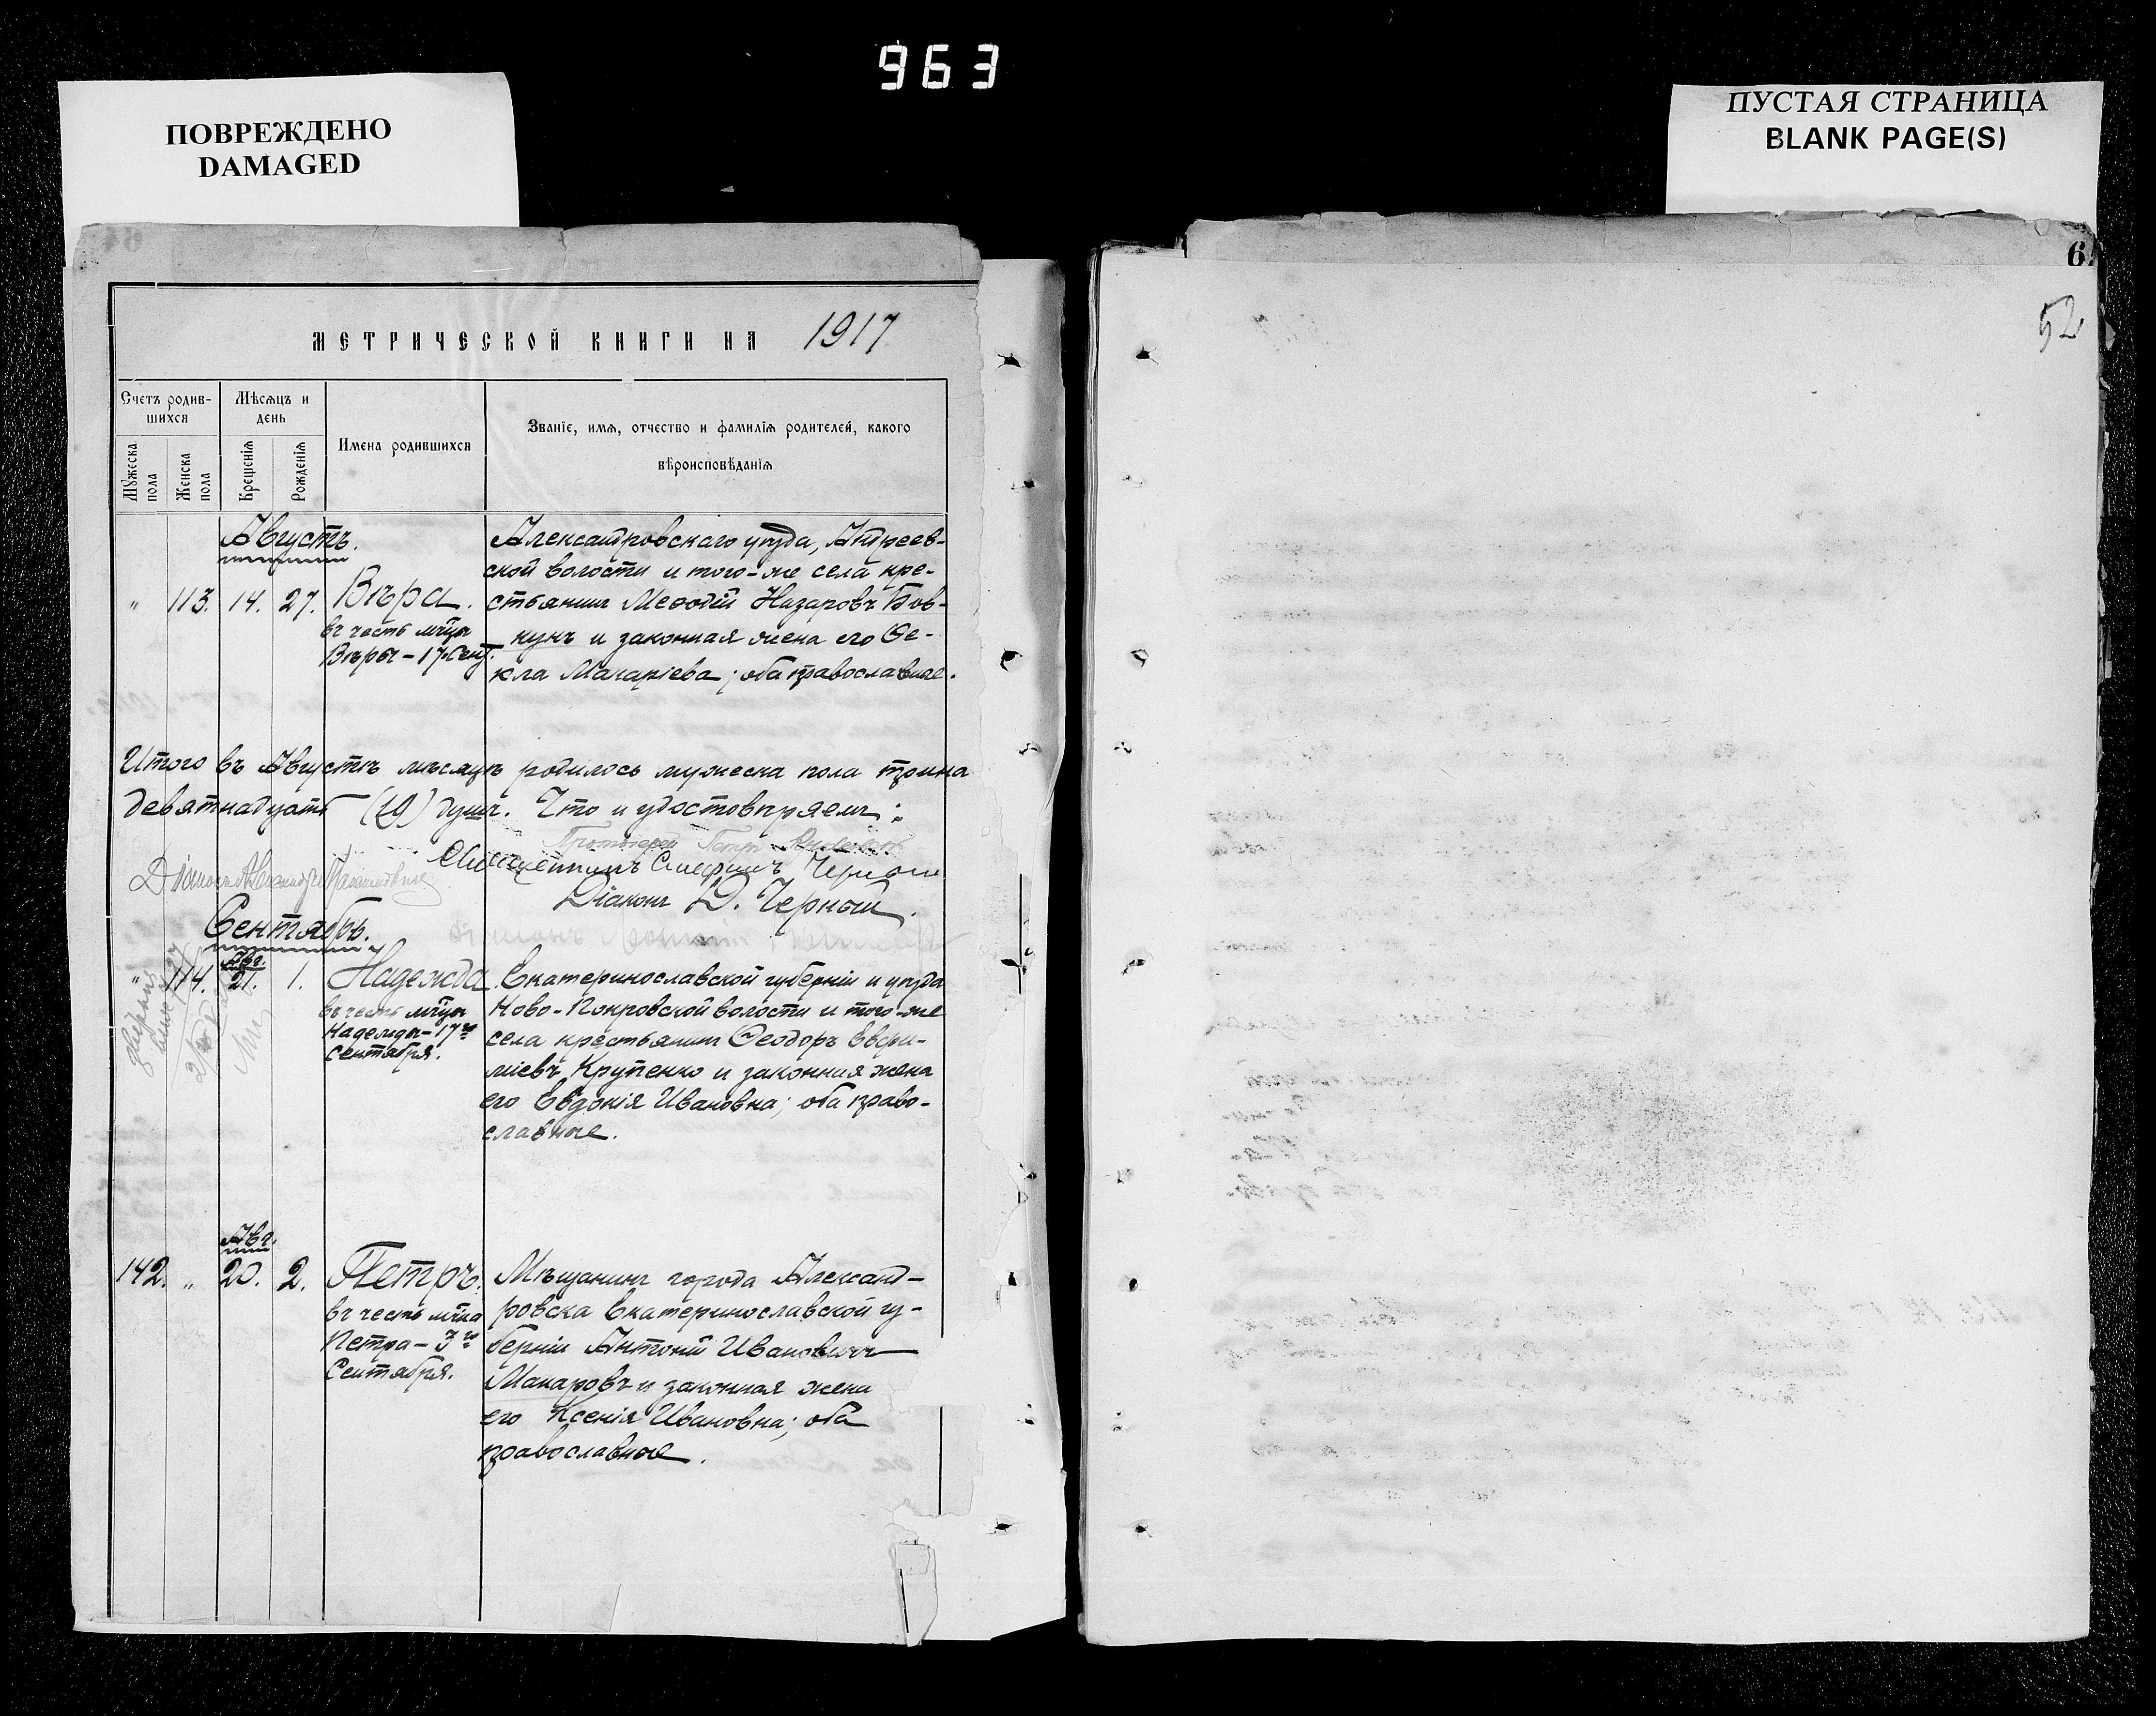 963
ПОВРЕЖДЕНО
DAMAGED
ПУСТАЯ СТРАНИЦА
BLANK PAGE(S)
6
52
МЕТРИЧЕСКОЙ КНИГИ НА 1917
Счетъ родив-
шихся
Мѣсяцъ и
день
Мужеска
пола
Женска
пола
Крещенія
Рожденія
Имена родившихся
Званіе, имя, отчество и фамилія родителей, какого
вѣроисповѣданія
Августъ.
" 113. 14. 27. Вѣра.
въ честь мч̃цы
Вѣры – 17 Сент.
Александровскаго уѣзда, Андреев-
ской волости и того-же села кре-
стьянинъ Меѳодій Назаровъ Бов-
кунъ и законная жена его Ѳе-
кла Макаріева; оба православные.
Итого въ Августѣ мѣсяцѣ родилось мужеска пола
девятнадцать (19) душъ. Что и удостовѣряемъ:
Протоіерей Петръ
Священникъ
Діаконъ Д. Черный.
Сентябрь.
Авг.
" 114. 21. 1. Надежда.
въ честь мч̃цы
Надежды – 17го
Сентября.
Екатеринославской губерніи и уѣзда
Ново-Покровской волости и того-же
села крестьянинъ Ѳеодоръ
Крупенко и законная жена
его Евдокія Ивановна; оба право-
славные.
Авг.
142. " 20. 2. Петръ.
въ честь мч̃ка
Петра – 3го
Сентября.
Мѣщанинъ города Александ-
ровска Екатеринославской гу-
берніи Антоній Ивановичъ
Макаровъ и законная жена
его Ксенія Ивановна; оба
православные.